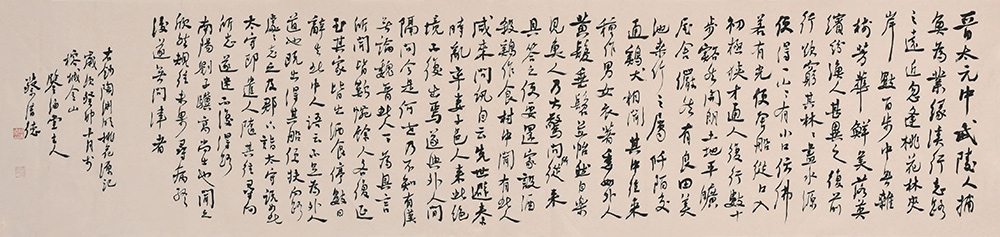 晉太元中武陵人捕
魚為業緣溪行忘路
之遠近忽逢桃花林夾
岸數百步中無雜
樹芳華鮮美落英
繽紛漁人甚異之復前
行欲窮其林林盡水源
便得一山山有小口彷彿
若有光便舍船從口入
初極狹才通人復行數十
步豁然開朗土地平曠
屋舍儼然有良田美
池桑竹之屬阡陌交
通鷄犬相聞其中往來
種作男女衣著悉如外人
黃髮垂髫並怡然自樂
見漁人乃大驚問所從來
具答之便要還家設酒
殺鷄作食村中聞有此人
咸來問訊自云先世避秦
時亂率妻子邑人來此絕
境不復出焉遂與外人間
隔問今是何世乃不知有漢
無論魏晉此人一一為具言
所聞皆歎惋餘人各復延
至其家皆出酒食停數日
辭去此中人語云不足為外人
道也既出得其船便扶向路
處處志之及郡下詣太守說如此
太守即遣人隨其往尋向
所志遂迷不復得路
南陽劉子驥高尚士也聞之
欣然規往未果尋病終
後遂無問津者
右錄陶淵明桃花源記
歲次癸卯十月書
榕城金山
堂主人